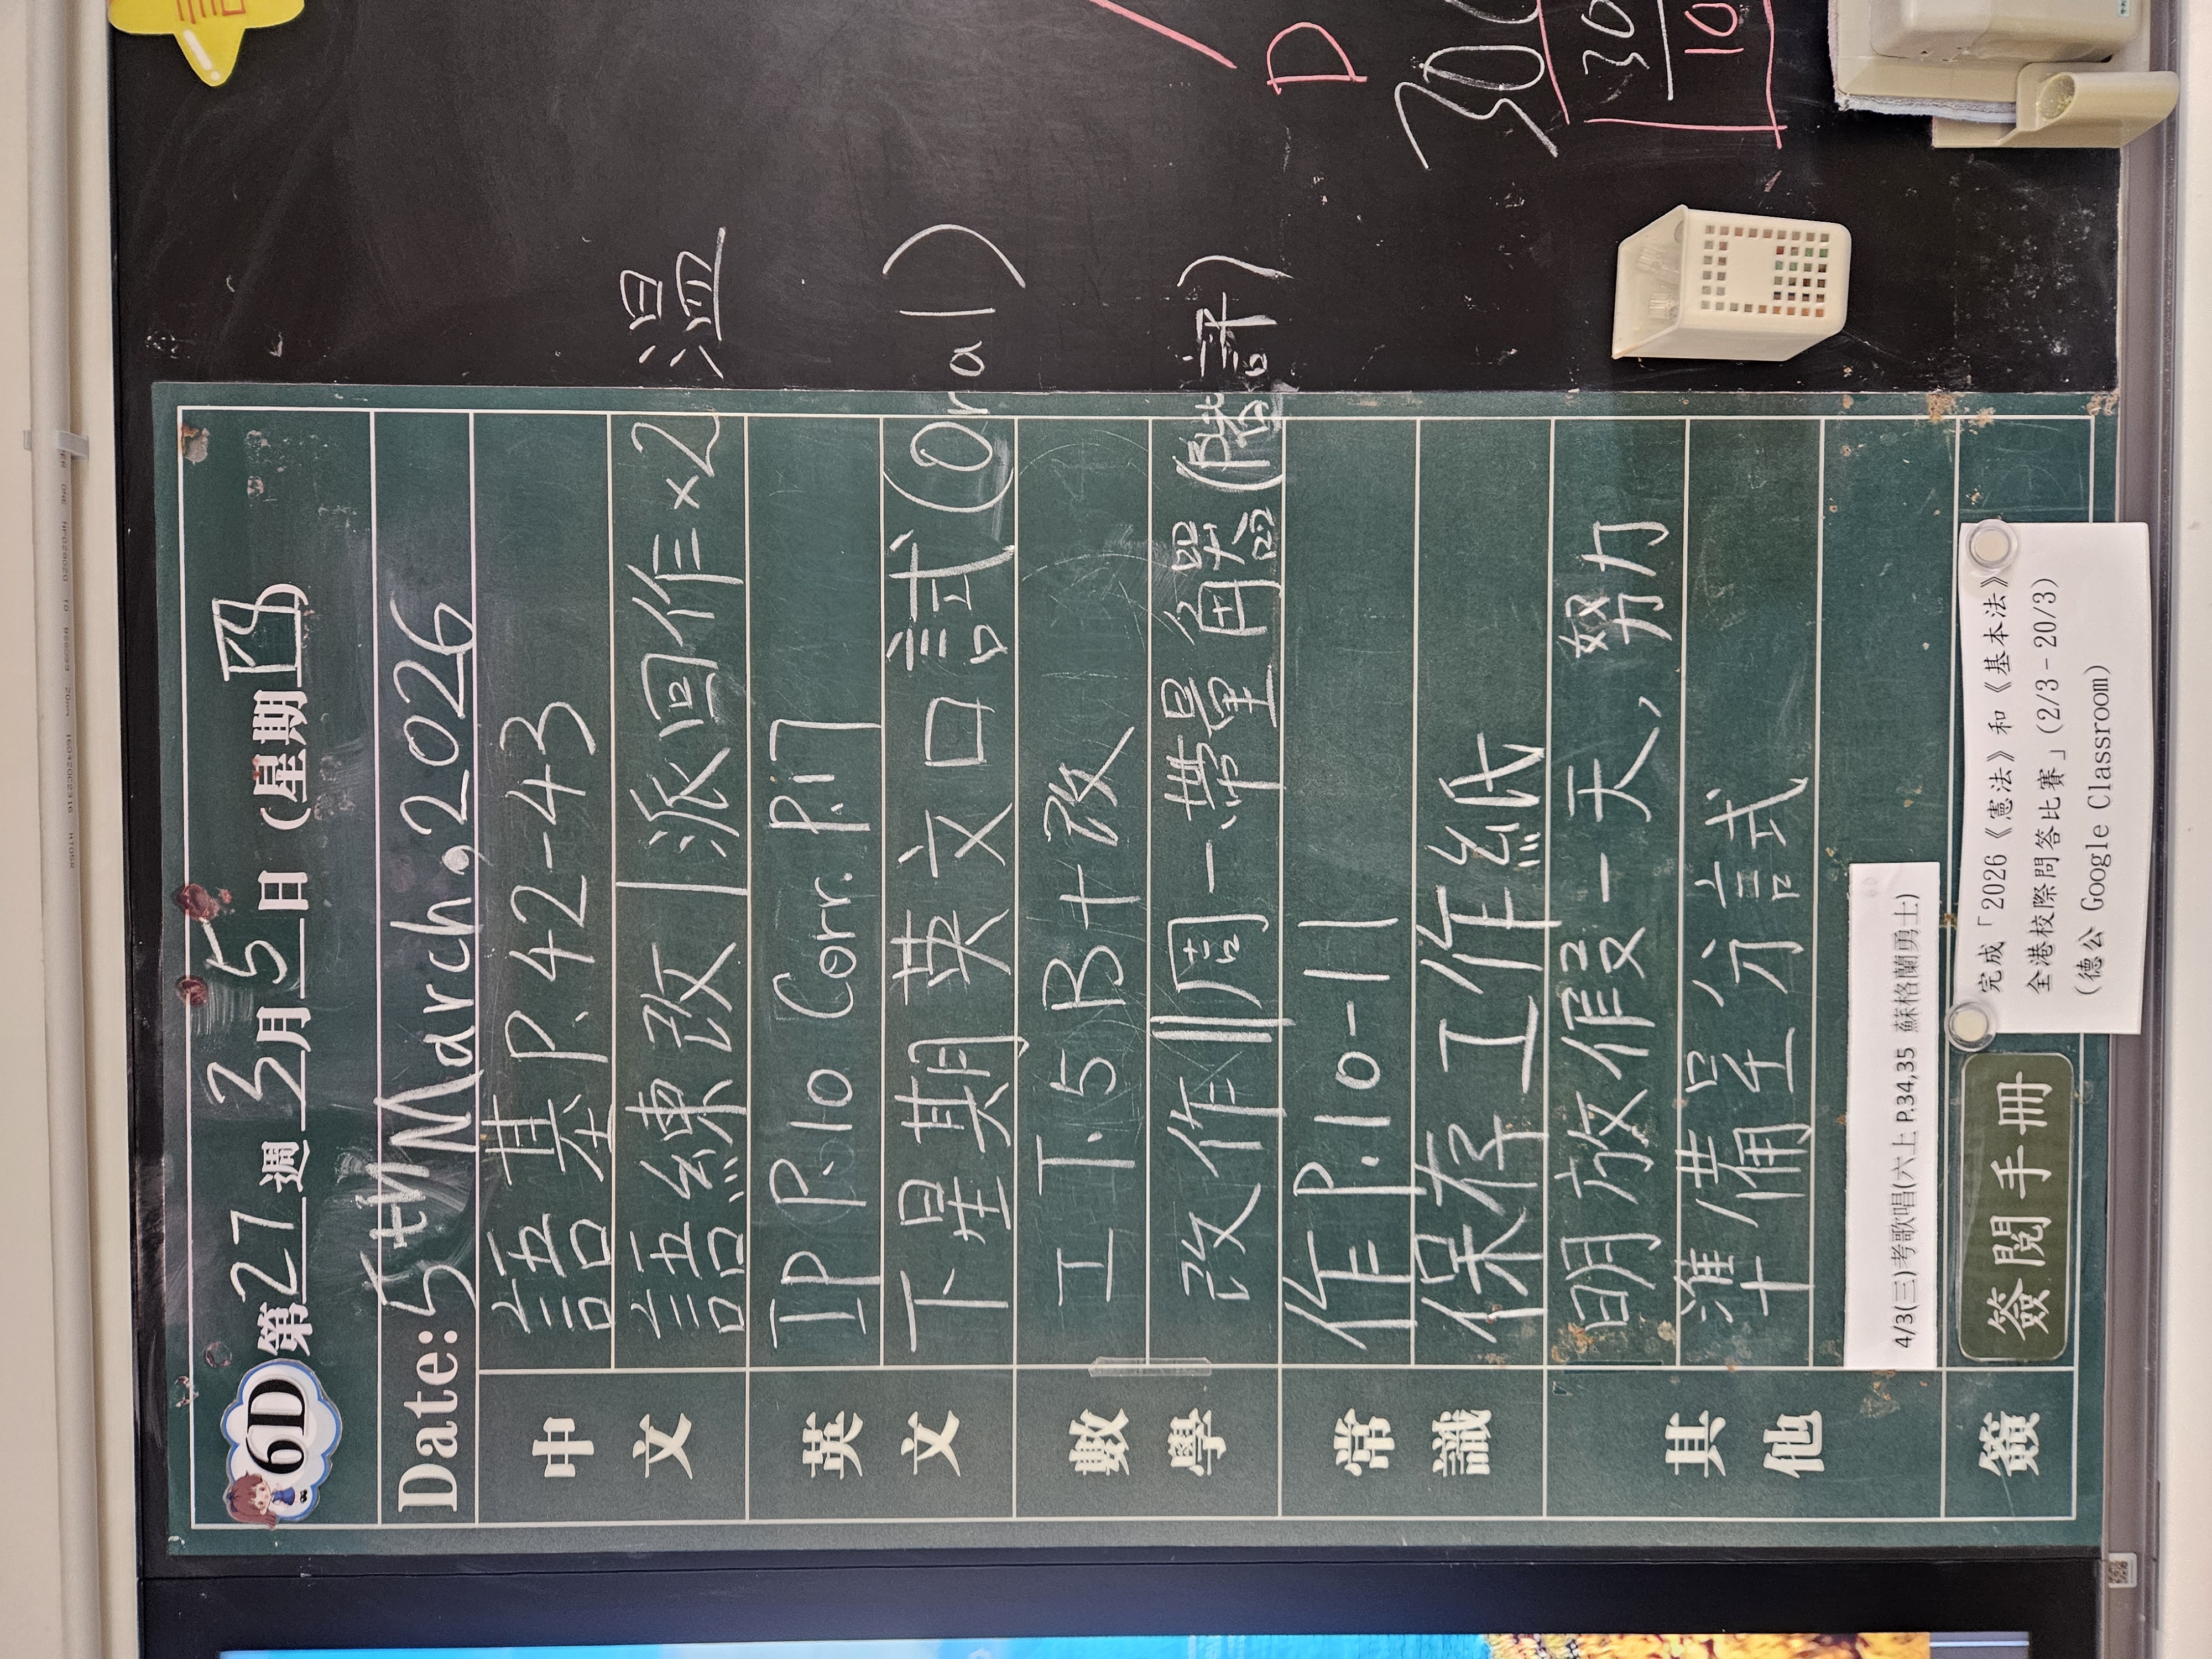 6D 第27週3月5日(星期凸
Date: 5th March, 2026
中文
語基P.42-43
語練改|派回作×2 溫
英文
IP P.10 Corr. P.17
下星期英文口試(Oral)
數學
工T.5B+改
改作 周一帶量角器(隨評)
常識
作P.10-11
保存工作紙
其他
明放假一天, 努力
準備呈分試
4/3(三)考歌唱(六上 P.34,35 蘇格蘭勇士)
簽
簽閱手冊
完成「2026《憲法》和《基本法》
全港校際問答比賽」(2/3-20/3)
(德公 Google Classroom)
D
30
10